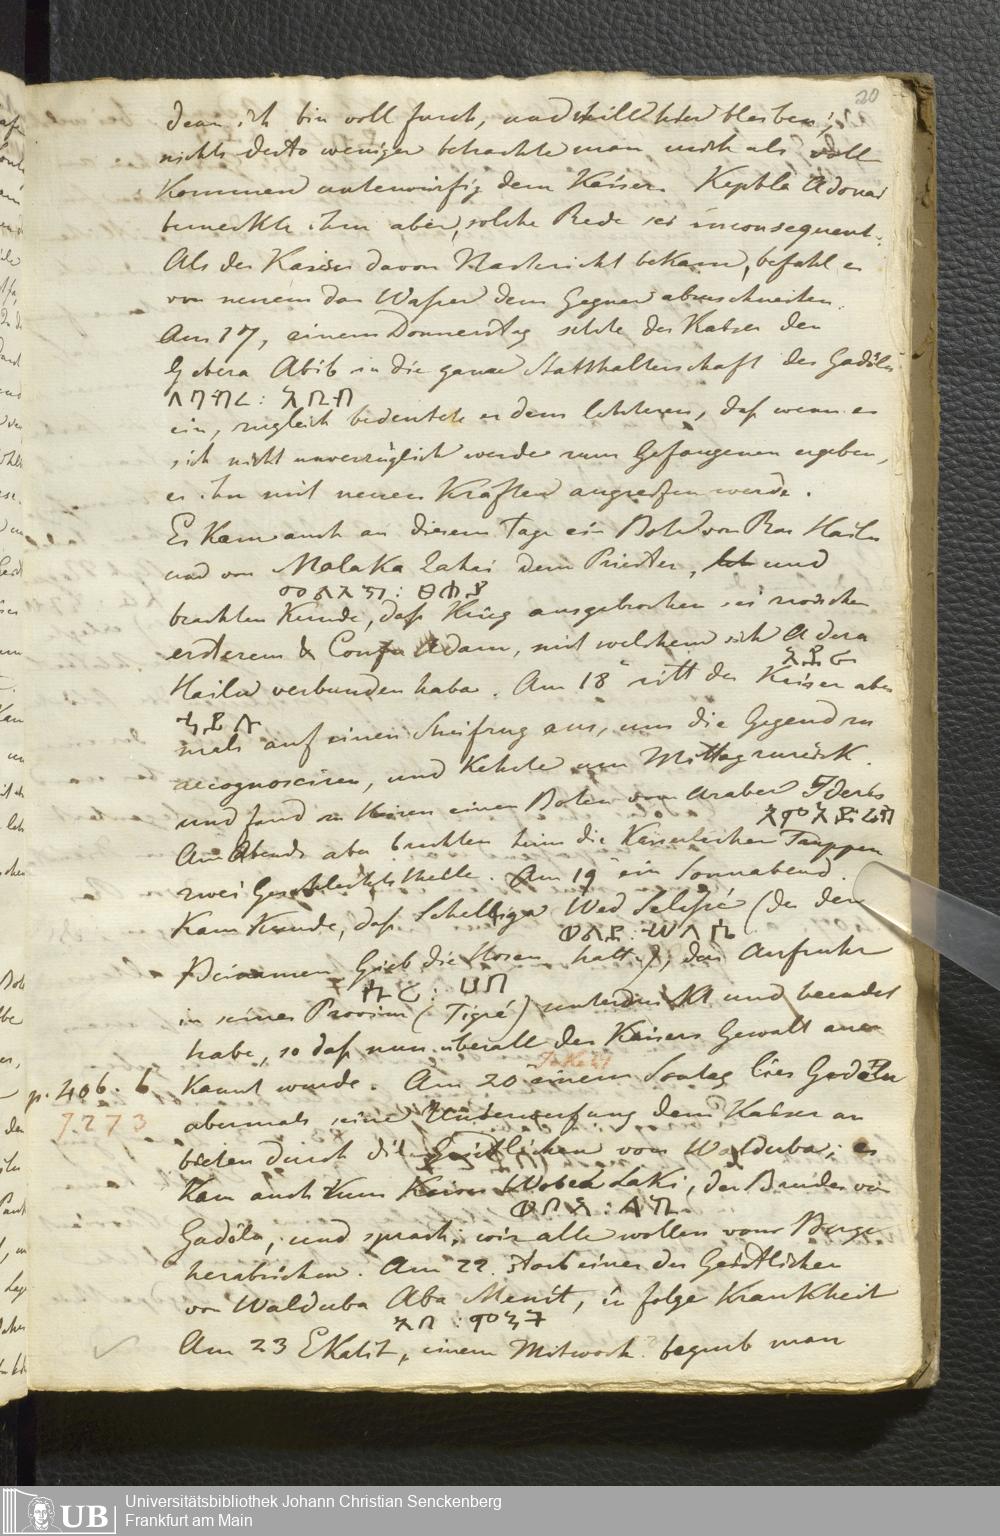 20
denn ich bin voll Furch, und will hier bleiben;
nichts desto weniger betrachte man mich als voll
kommen unterwürfig dem Kaiser. Kephla Adonai
bemerkte ihm aber, solche Rede sei inconsequent.
Als der Kaiser davon Nachricht bekam, befahl er
von neuem das Wasser dem Gegner abzuschneiden.
Am 17, einem Donnerstag setzte der Kaiser den
Gebera Abib in die ganze Statthalterschaft des Gadölu
ein, zugleich bedeutete er dem letzteren, daß wenn er
sich nicht unverzüglich werde zum Gefangenen ergeben,
er ihn mit neuen Kräften angreifen werde.
Es kam auch an diesem Tage ein Bote von Ras Hailu
und von Malaka Zahai dem Priester, und
brachten Kunde, daß Krieg ausgebrochen sei zwischen
ersterem & Confu Adam, mit welchem sich Adera
አደራ
Hailu verbunden habe. Am 18 ritt der Kaiser aber
ኃይሉ
mals auf einen Streifzug aus, um die Gegend zu
recognosciren, und kehrte um Mittag zurück.
und fand zu Hause einen Boten vom Araber Ideris
Am Abende aber brachten ihm die Kaiserlichen Truppen
zwei Am 19 ein Sonnabend.
Kam Kunde, daß Wed Selasié (der den
Beinamen Gieb die Hosen hatte), den Aufruhr
in seiner Provinz (Tigré) unterdrückt und beendet
habe, so daß nun überall des Kaisers Gewalt aner
kannt wurde. Am 20 einem Sontag lies Gadölu
p. 406. b
7273
abermals seine Unterwerfung dem Kaiser an
bieten durch die Geistlichen von Walduba; es
kam auch zum Kaiser Webea Laki, der Bruder von
Gadölu, und sprach, wir alle wollen vom Berge
herabziehen. Am 22. starb einer der Geistlichen
von Walduba Aba Menit, in folge Krankheit
Am 23 Ekatit, einem Mitwoch begrub man
Universitätsbibliothek Johann Christian Senckenberg
Frankfurt am Main
UB